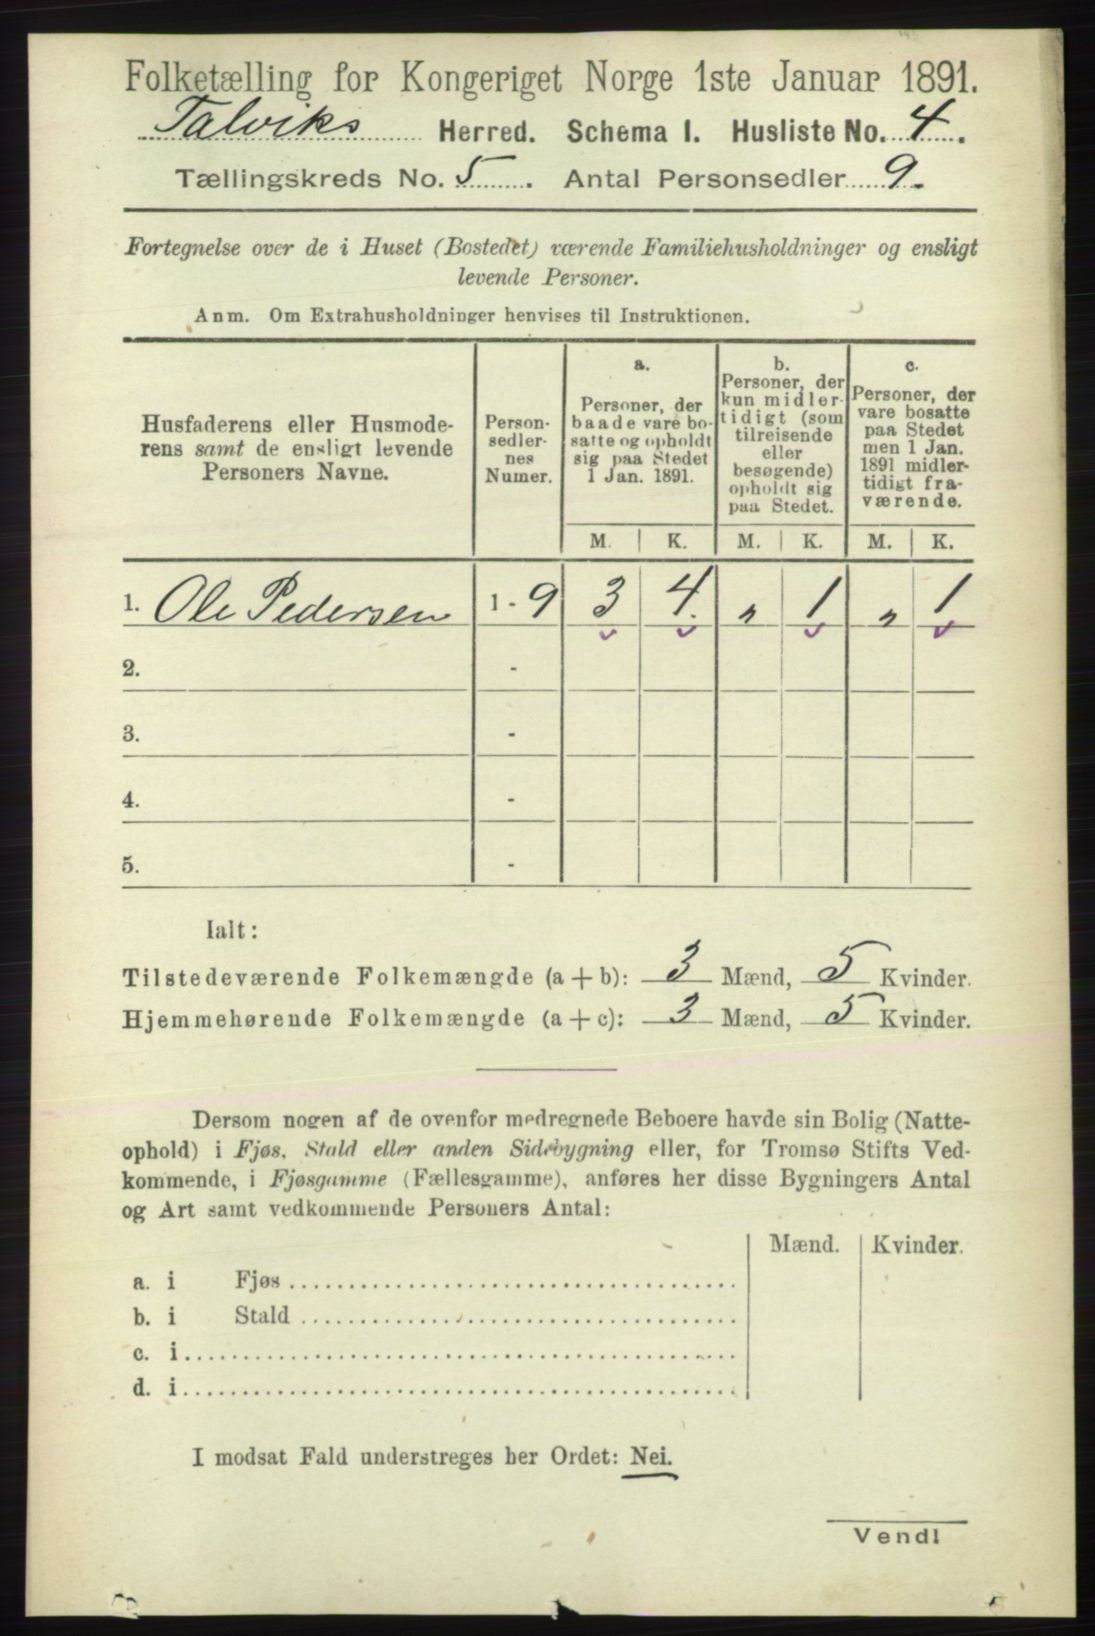 Folketælling for Kongeriget Norge 1ste Januar 1891.
Talviks Herred. Schema I. Husliste No. 4.
Tællingskreds No. 5. Antal Personsedler 9.
Fortegnelse over de i Huset (Bostedet) værende Familiehusholdninger og ensligt
levende Personer.
Anm. Om Extrahusholdninger henvises til Instruktionen.
Husfaderens eller Husmode-
rens samt de ensligt levende
Personers Navne.
Person-
sedler-
nes
Numer.
a.
Personer, der
baade vare bo-
satte og opholdt
sig paa Stedet
1 Jan. 1891.
b.
Personer, der
kun midler-
tidigt (som
tilreisende
eller
besøgende)
opholdt sig
paa Stedet.
c.
Personer, der
vare bosatte
paa Stedet
men 1 Jan.
1891 midler-
tidigt fra-
værende.
M. K. M. K. M. K.
1. Ole Pedersen 1 - 9 3 4. " 1 " 1
2. -
3. -
4. -
5. -
Ialt:
Tilstedeværende Folkemængde (a + b): 3 Mænd, 5 Kvinder.
Hjemmehørende Folkemængde (a + c): 3 Mænd, 5 Kvinder.
Dersom nogen af de ovenfor medregnede Beboere havde sin Bolig (Natte-
ophold) i Fjøs, Stald eller anden Sidebygning eller, for Tromsø Stifts Ved-
kommende, i Fjøsgamme (Fællesgamme), anføres her disse Bygningers Antal
og Art samt vedkommende Personers Antal:
Mænd. Kvinder.
a. i Fjøs
b. i Stald
c. i
d. i
I modsat Fald understreges her Ordet: Nei.
Vend!